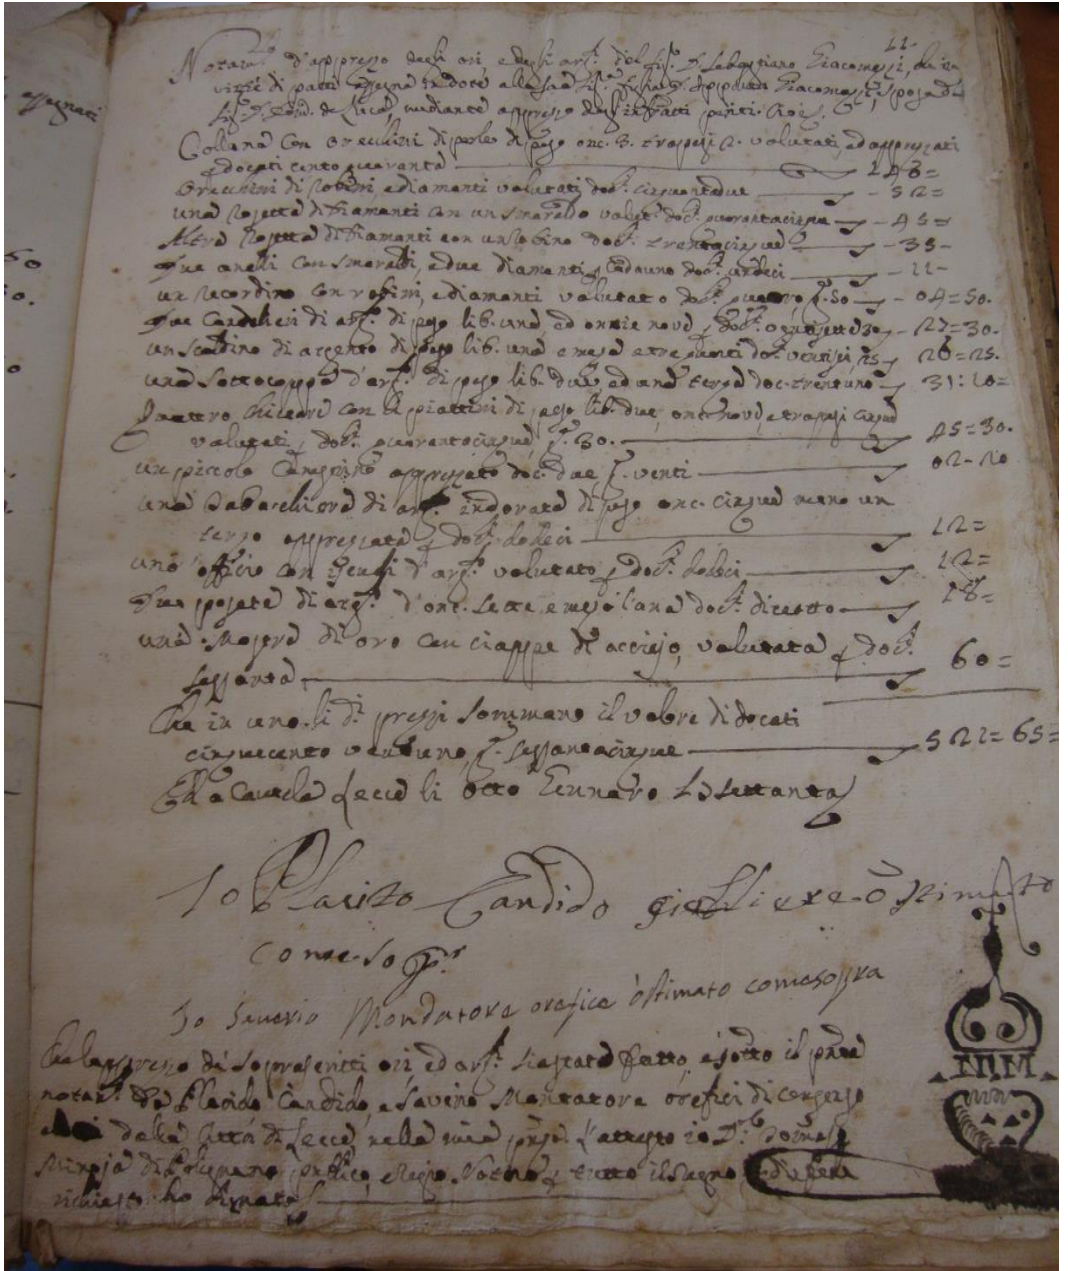 11-
Notam.to d'apprezzo degli ori, e degli arg.ti del Sig. D. Sebastiano Giacomozzi, che in
virtù di patti assegna in dote alla sua Sig.ra figlia D. Ippolita Giacomozzi, sposa del
Sig. D. de Luca, mediante apprezzo degl'infratti periti. Cioè
Collana con orecchini di perle di peso onc. 3. trapesi 2. valutati, ed apprezzati
docati cento quaranta 140=
Orecchini di robini, e diamanti valutati doc.ti cinquantadue - 52=
una rosetta di diamanti con un smeraldo valut. doc.ti quarantacinque - 45=
Altra rosetta di diamanti con un robino doc.ti trentacinque - 35-
Due anelli con smeraldi, e due diamanti, cadauno doc.ti undeci - 11-
un ricordino con robini, e diamanti valutato doc.ti quattro, g. 50 - 04=50.
Due candelieri di arg.to di peso lib. una, ed onnie nove p. doc.ti ventisette 30 - 27=30.
un scaldino di argento di peso lib. una e meza e tre quarti doc. ventisei, 25 26=25.
una sottocoppa d'arg.to di peso lib. due, ed una terza doc. trentuno 31:10=
Quattro chicare con li piattini di peso lib. due, onc. nove, e trapesi cinque
valutati p. doc.ti quarantacinque, g. 30. 45=30.
un piccolo canestrino apprezzato doc. due g. venti 02-20
una tabacchiera di arg.to indorata di peso onc. cinque meno un
terzo apprezzata p. doc.ti dodeci 12=
uno officio con scudi d'arg.to valutato p. doc.ti dodeci 12=
Due posate di arg.to d'onc. sette e mezo l'una doc.ti diciotto 18=
una mostra di oro con ciappe di acciajo, valutata p. doc.ti
sessanta 60=
Che in uno li d.i prezzi sommano il valore di docati
cinquecento ventuno, g. sessantacinque 521=65=
Ed a cautela Lecce li otto Gennaro settanta
Io Placito Candido gioelliere ò stimato
come sop.a
Io Saverio Mondatore orefice ò stimato come sopra
Che l'apprezzo de' soprascritti ori, ed arg.ti sia stato fatto, e sotto il pnte
notam.to da Placido Candido, e Savino Mantatore orefici di
della Città di Lecce, nella mia pnza l'attesto io D.r
di Polignano publico, e Regio Notaro, e tutto il segno
richiesto ho signato
NM